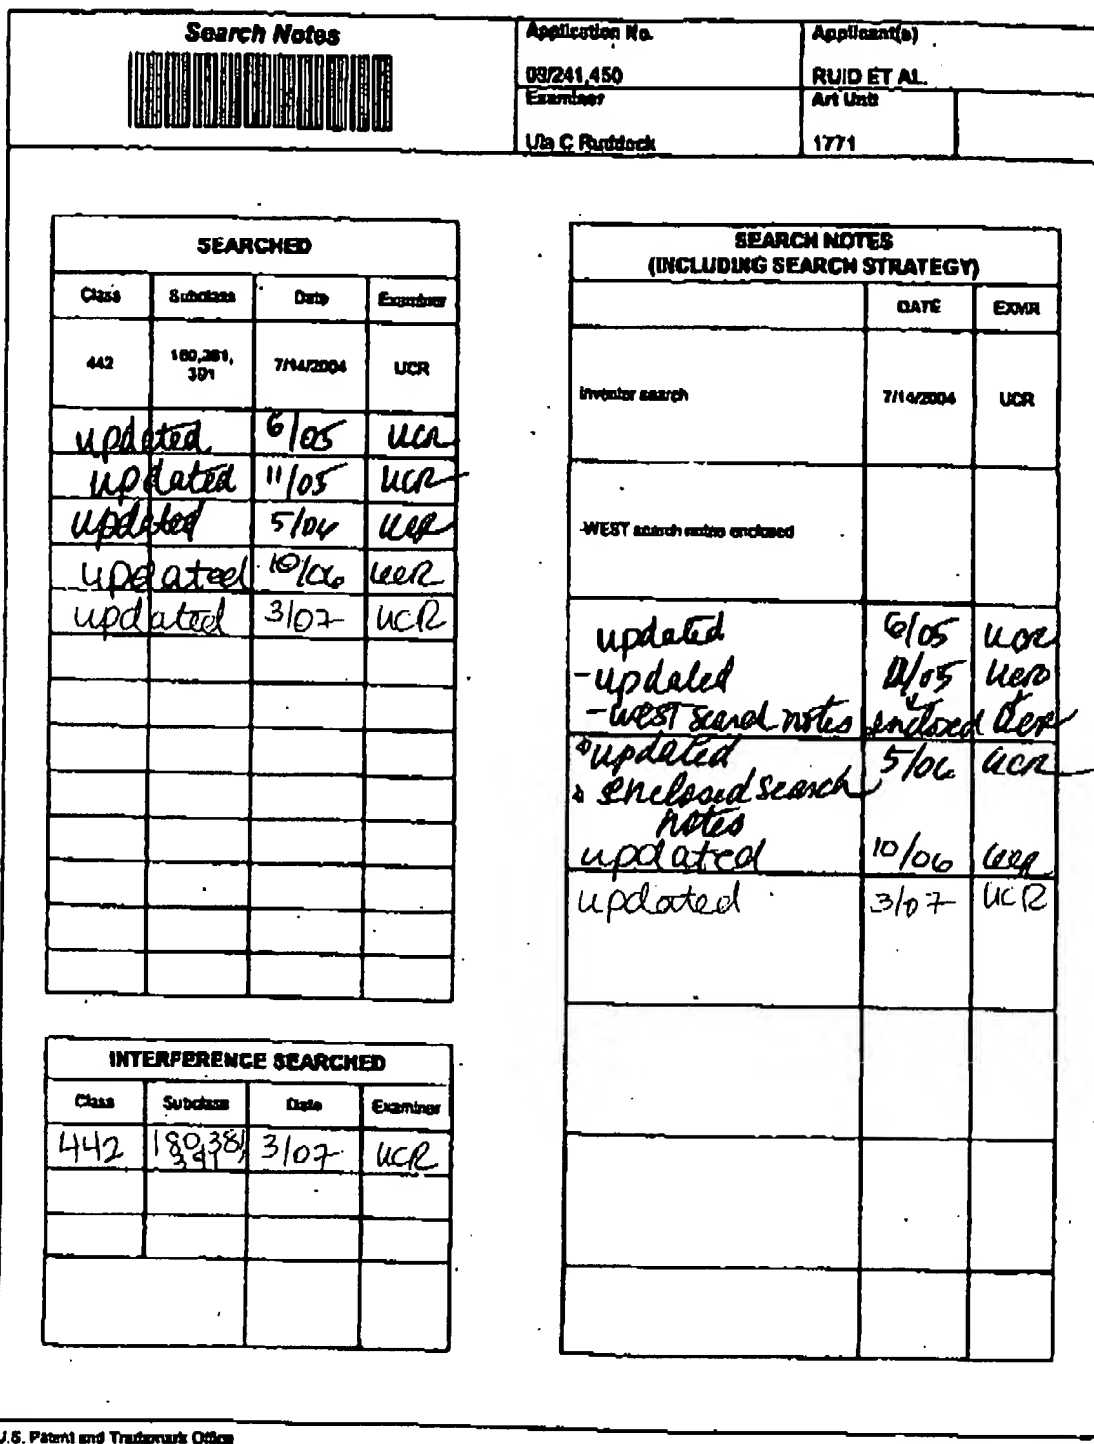 Search Notes
Application No.
Applicant(s)
09/241,450
RUID ET AL.
Examiner
Art Unit
Ula C Ruddock
1771
SEARCHED
Class Subclass Date Examiner
442 180,381, 391 7/14/2004 UCR
updated 6/05 UCR
updated 11/05 UCR
updated 5/06 UCR
updated 10/06 UCR
updated 3/07 UCR
INTERFERENCE SEARCHED
Class Subclass Date Examiner
442 180,381, 391 3/07 UCR
SEARCH NOTES
(INCLUDING SEARCH STRATEGY)
DATE EXMR
inventor search 7/14/2004 UCR
-WEST search notes enclosed
updated 6/05 UCR
-updated 11/05 UCR
-WEST search notes enclosed UCR
updated 5/06 UCR
enclosed search
notes
updated 10/06 UCR
updated 3/07 UCR
U.S. Patent and Trademark Office